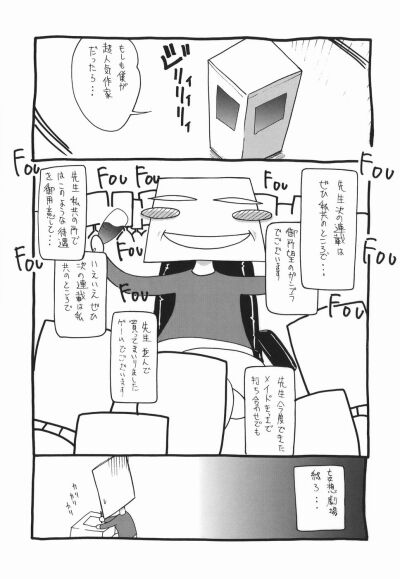 もしも僕が
超人気作家
だったら・・・
ブィィィン
FOU
FOU
FOU
FOU
FOU
FOU
先生次の連載は
ぜひ私共のところで・・・
先生 私共の所で
はこのような待遇
を御用意して・・・
FOU
FOU
FOU
御所望のガンプラ
でございます!
いえいえ ぜひ
次の連載は私
共のところで
FOU
先生 並んで
買ってまいりました
ゲームでございます!
先生 今度できた
メイドきっさで
打ち合わせでも
妄想劇場
終ろ・・・
カリカリ
カリカリ